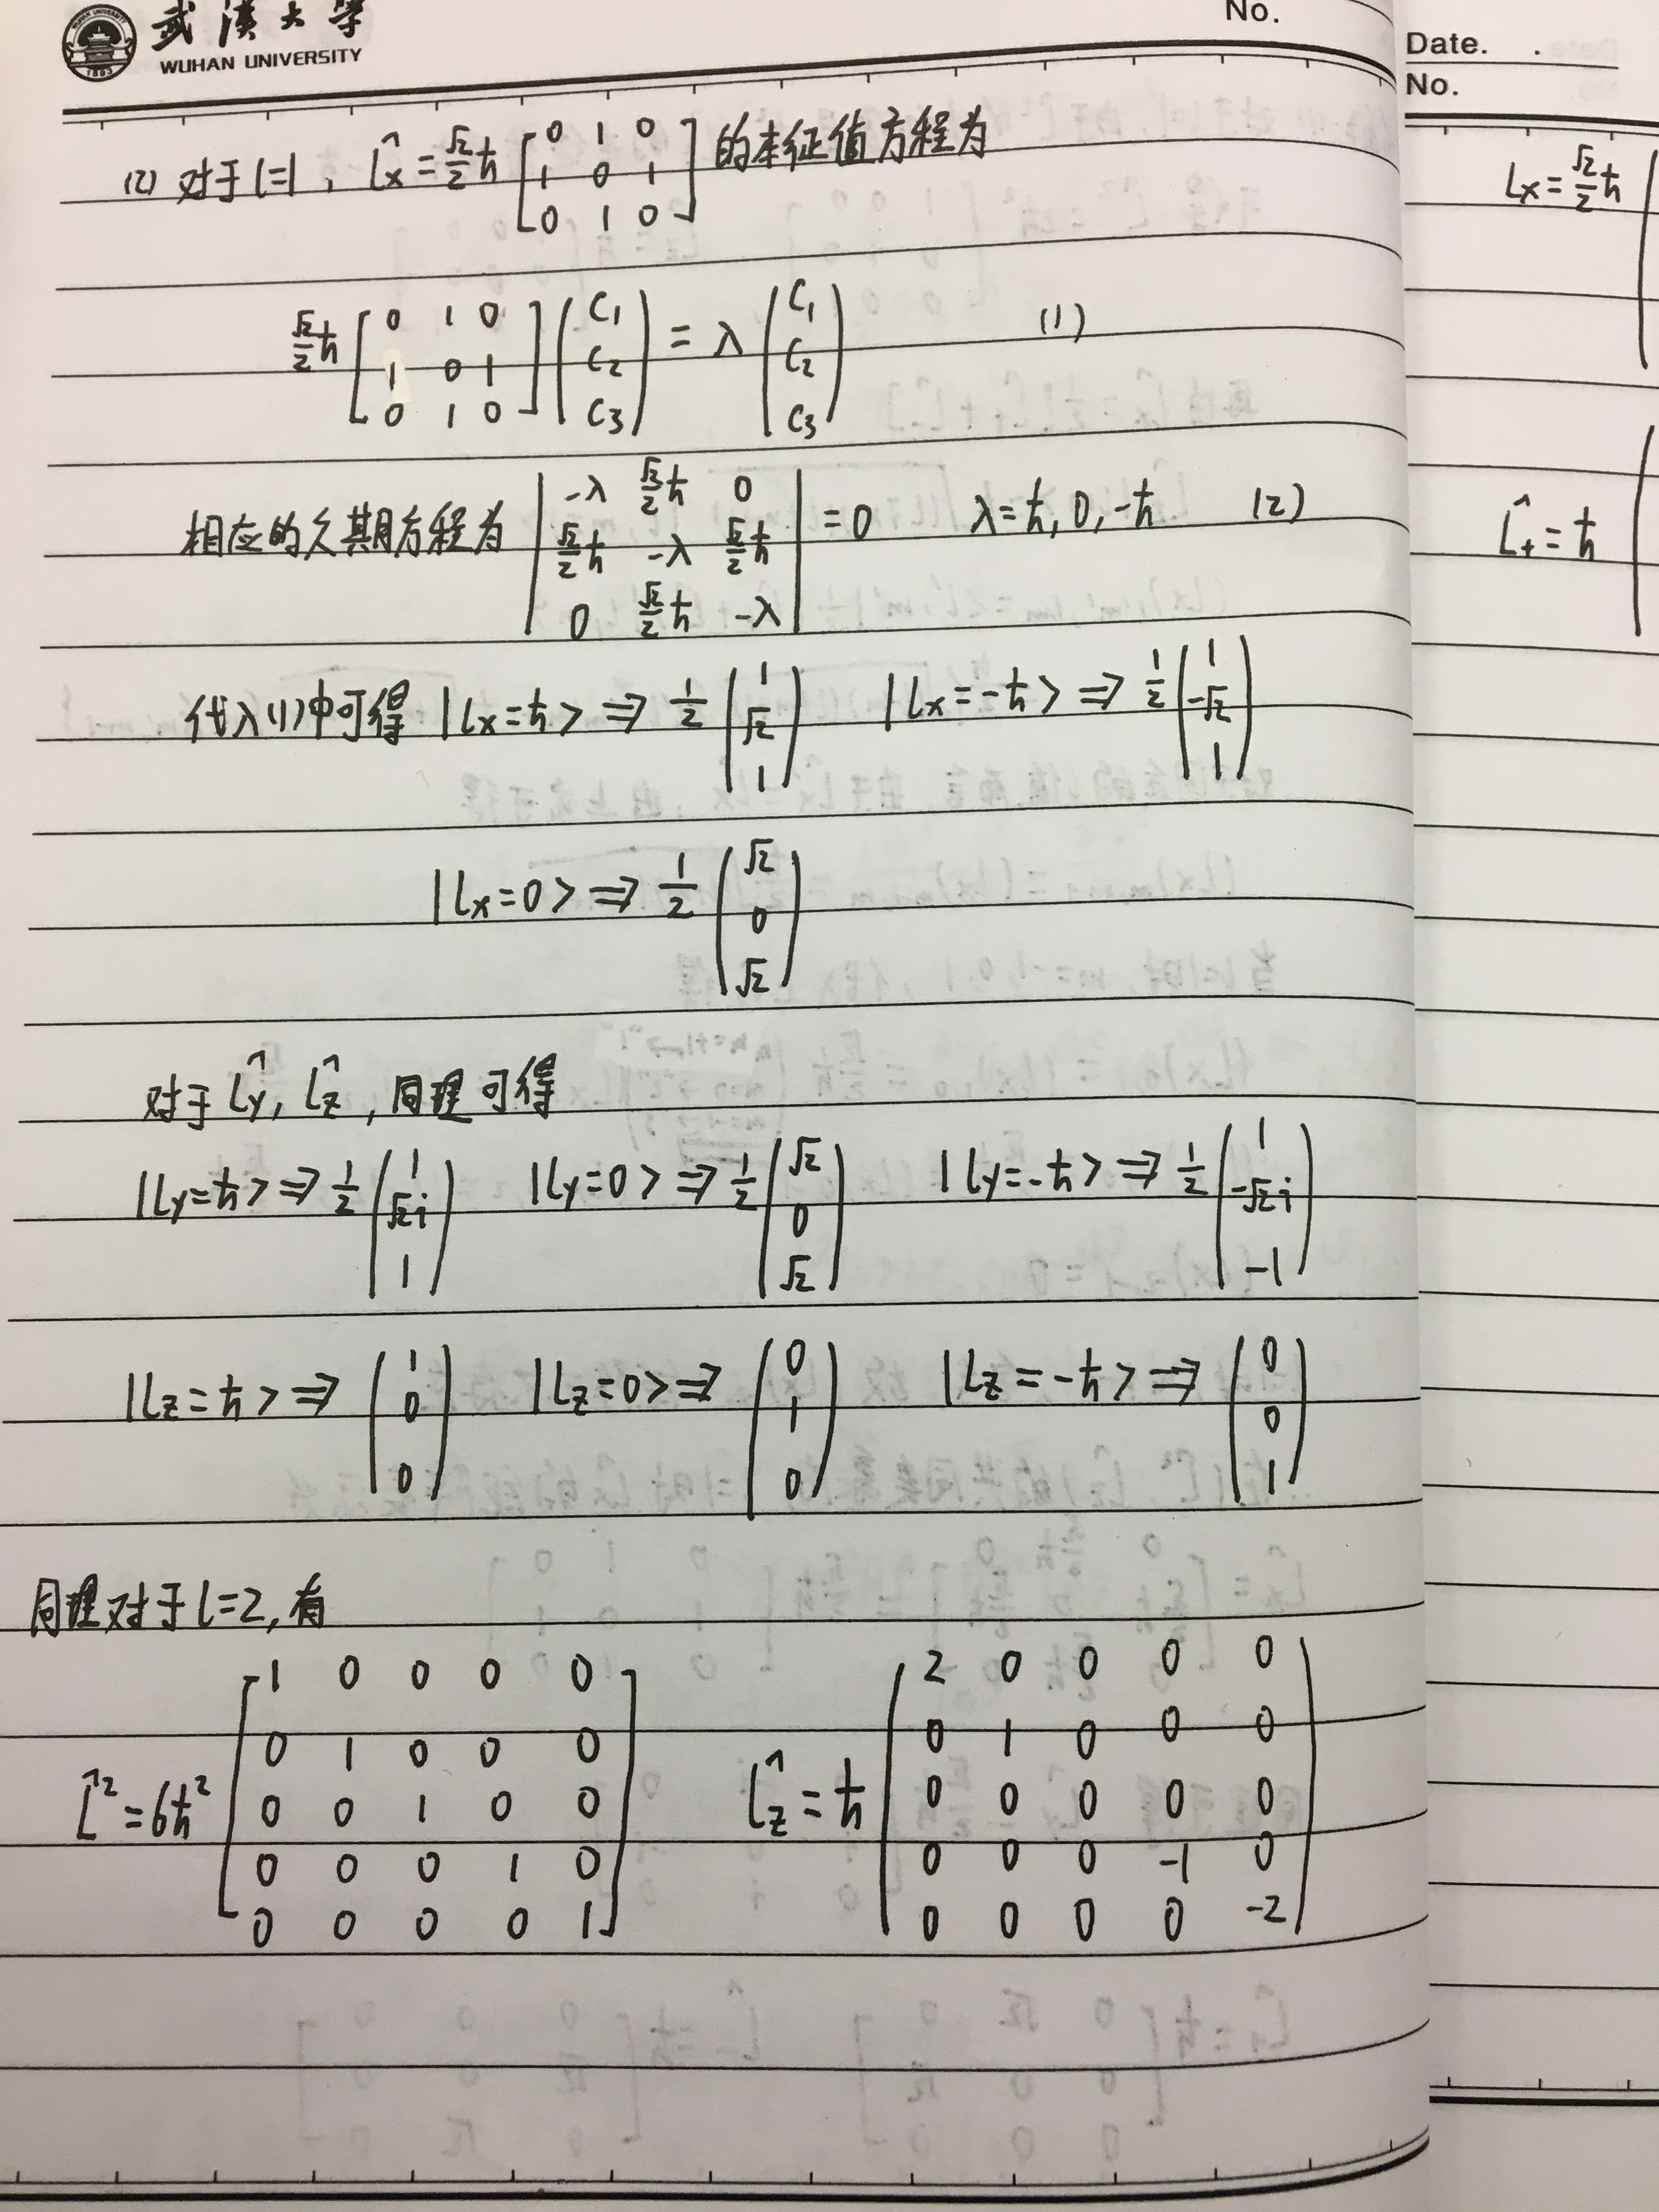 武漢大學
WUHAN UNIVERSITY
1893
No.
Date. .
No.
(2) 对于 l=1, L̂x = √2/2 ħ [0 1 0; 1 0 1; 0 1 0] 的本征值方程为
√2/2 ħ [0 1 0; 1 0 1; 0 1 0] (C1; C2; C3) = λ (C1; C2; C3) (1)
相应的久期方程为 |-λ √2/2 ħ 0; √2/2 ħ -λ √2/2 ħ; 0 √2/2 ħ -λ| = 0 λ=ħ, 0, -ħ (2)
代入(1)中可得 |Lx=ħ> ⇒ 1/2 (1; √2; 1) |Lx=-ħ> ⇒ 1/2 (1; -√2; 1)
|Lx=0> ⇒ 1/2 (√2; 0; √2)
对于 L̂y, L̂z, 同理可得
|Ly=ħ> ⇒ 1/2 (1; √2i; 1) |Ly=0> ⇒ 1/2 (√2; 0; √2) |Ly=-ħ> ⇒ 1/2 (1; -√2i; -1)
|Lz=ħ> ⇒ (1; 0; 0) |Lz=0> ⇒ (0; 1; 0) |Lz=-ħ> ⇒ (0; 0; 1)
同理对于 l=2, 有
L̂² = 6ħ² [1 0 0 0 0; 0 1 0 0 0; 0 0 1 0 0; 0 0 0 1 0; 0 0 0 0 1] L̂z = ħ (2 0 0 0 0; 0 1 0 0 0; 0 0 0 0 0; 0 0 0 -1 0; 0 0 0 0 -2)
Lx = √2/2 ħ (
L̂+ = ħ (